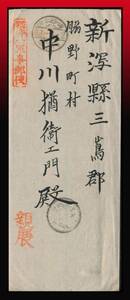 新潟縣三嶌郡
脇野町村
中川猶衛エ門殿
親展